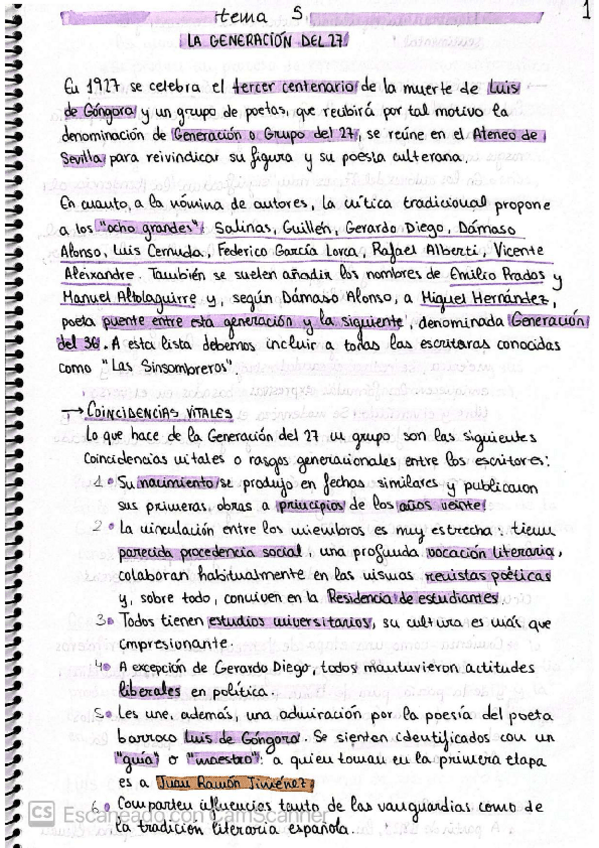 tema 5
1
LA GENERACIÓN DEL 27
En 1927 se celebra el tercer centenario de la muerte de Luis
de Góngora y un grupo de poetas, que recibirá por tal motivo la
denominación de Generación o Grupo del 27, se reúne en el Ateneo de
Sevilla para reivindicar su figura y su poesía culterana.
En cuanto, a la nómina de autores, la crítica tradicional propone
a los "ocho grandes": Salinas, Guillén, Gerardo Diego, Dámaso
Alonso, Luis Cernuda, Federico García Lorca, Rafael Alberti, Vicente
Aleixandre. También se suelen añadir los nombres de Emilio Prados y
Manuel Altolaguirre y, según Dámaso Alonso, a Miguel Hernández,
poeta puente entre esta generación y la siguiente, denominada Generación
del 36. A esta lista debemos incluir a todas las escritoras conocidas
como "Las Sinsombreros".
→ COINCIDENCIAS VITALES
Lo que hace de la Generación del 27 un grupo son las siguientes
coincidencias vitales o rasgos generacionales entre los escritores:
1• Su nacimiento se produjo en fechas similares y publicaron
sus primeras obras a principios de los años veinte.
2• La vinculación entre los miembros es muy estrecha: tienen
parecida procedencia social, una profunda vocación literaria,
colaboran habitualmente en las mismas revistas poéticas
y, sobre todo, conviven en la Residencia de estudiantes.
3• Todos tienen estudios universitarios, su cultura es más que
impresionante.
4• A excepción de Gerardo Diego, todos mantuvieron actitudes
liberales en política.
5• Les une, además, una admiración por la poesía del poeta
barroco Luis de Góngora. Se sienten identificados con un
"guía" o "maestro": a quien toman en la primera etapa
es a Juan Ramón Jiménez.
6• Comparten influencias tanto de las vanguardias como de
la tradición literaria española.
CS Escaneado con CamScanner